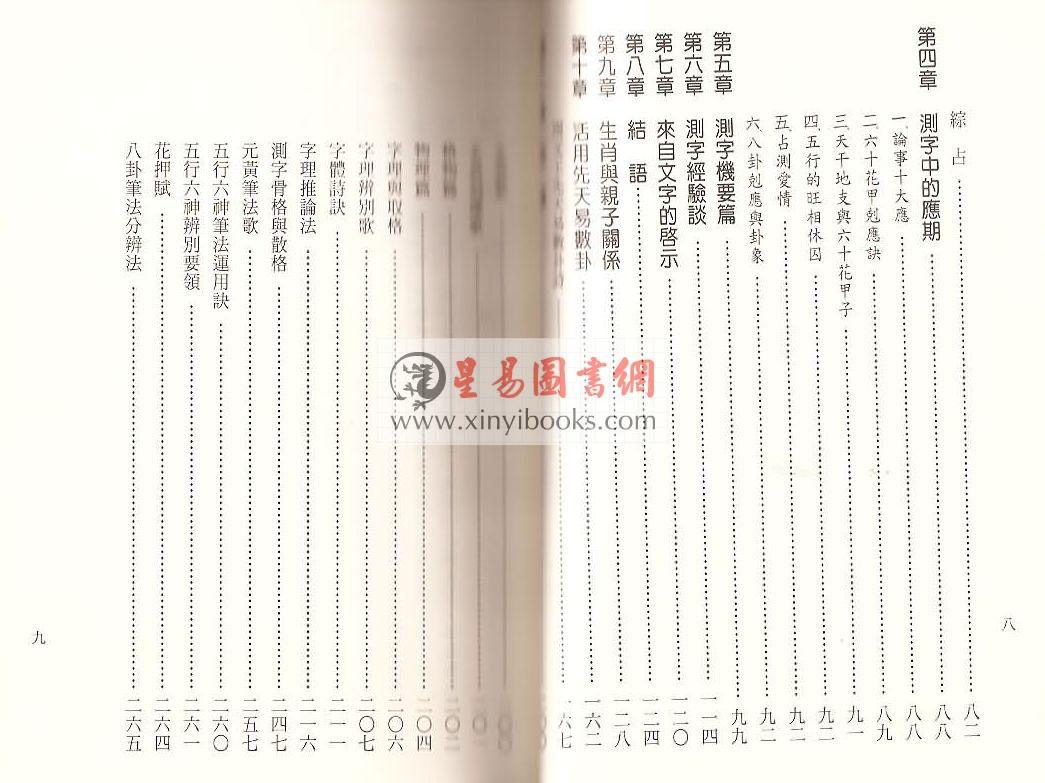 綜占……八二
第四章 測字中的應期……八八
一、論事十大應……八八
二、六十花甲剋應訣……八九
三、天干地支與六十花甲子……九一
四、五行的旺相休囚……九二
五、占測愛情……九二
六、八卦剋應與卦象……九二
第五章 測字機要篇……九九
第六章 測字經驗談……一一四
第七章 來自文字的啓示……一二〇
第八章 結語……一二四
第九章 生肖與親子關係……一二八
第十章 活用先天易數卦……一六二
八
物理篇……二〇四
字理與取格……二〇六
字理辨別歌……二〇七
字體詩訣……二一一
字理推論法……二一六
測字骨格與散格……二四七
元黃筆法歌……二五七
五行六神筆法運用訣……二六〇
五行六神辨別要領……二六一
花押賦……二六四
八卦筆法分辨法……二六五
九
星易圖書網
www.xinyibooks.com